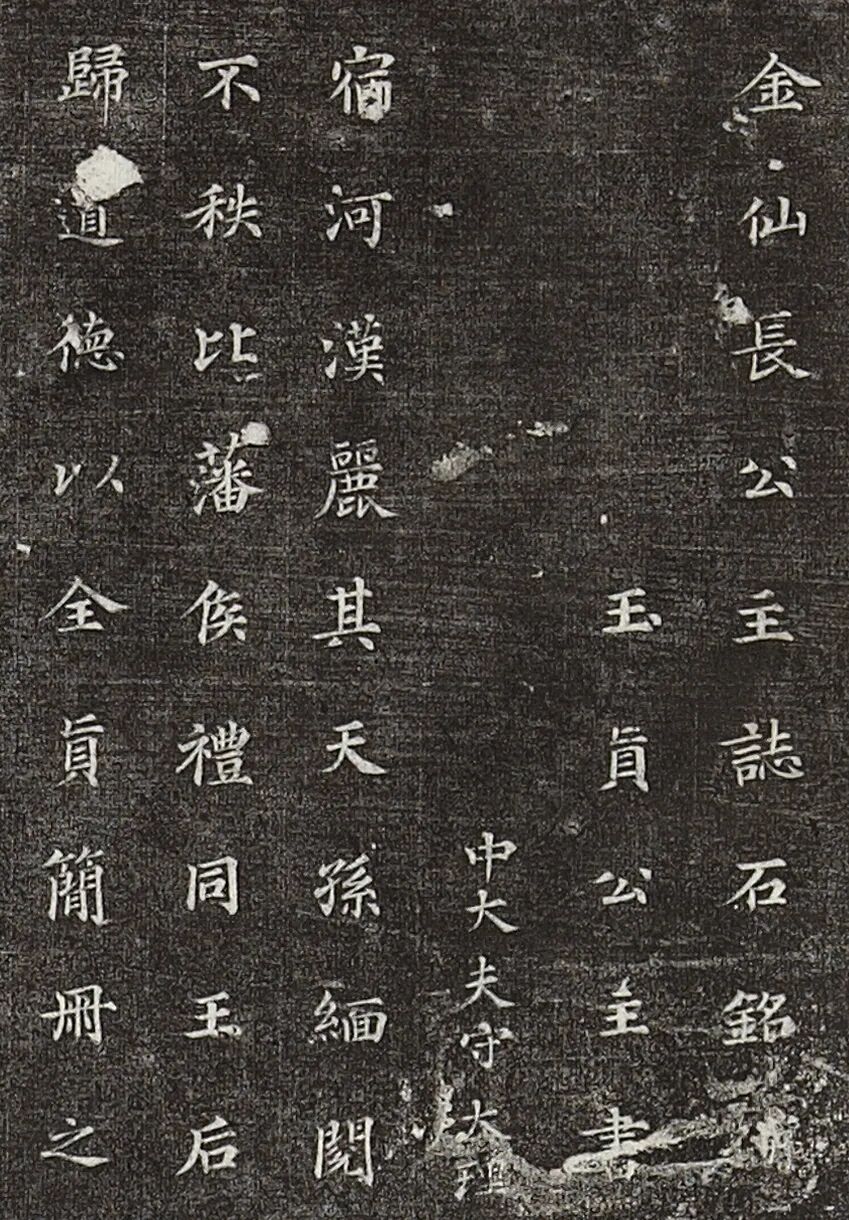 金仙長公主誌石銘并
玉真公主書
中大夫守大理
宿河漢麗其天孫緬閱
不秩比藩侯禮同王后
歸道德以全真簡冊之